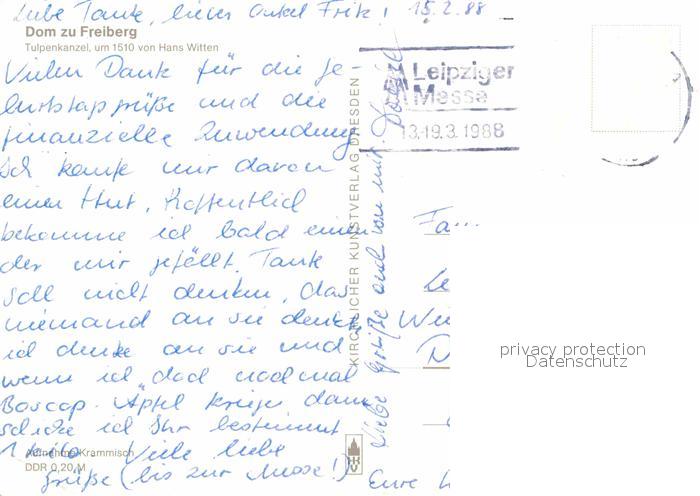 Liebe Tante, lieber Onkel Fritz! 15.2.88
Dom zu Freiberg
Tulpenkanzel, um 1510 von Hans Witten
Vielen Dank für die Ge-
burtstagsgrüße und die
finanzielle Zuwendung.
Ich kaufe mir davon
einen Hut. Hoffentlich
bekomme ich bald einen
der mir gefällt. Tante
soll nicht denken, das
niemand an sie denkt
ich denke an sie und
wenn ich noch mal
Boscop-Äpfel kriege dann
schicke ich Ihr bestimmt
1 Kilo Viele liebe
Grüße (bis zur Messe!)
Aufnahme Krammisch
DDR 0,20 M
KIRCHLICHER KUNSTVERLAG DRESDEN
Liebe Grüße auch von mir.
Leipziger
Messe
13.-19.3.1988
Fa...
Le
We
D
Eure
privacy protection
Datenschutz